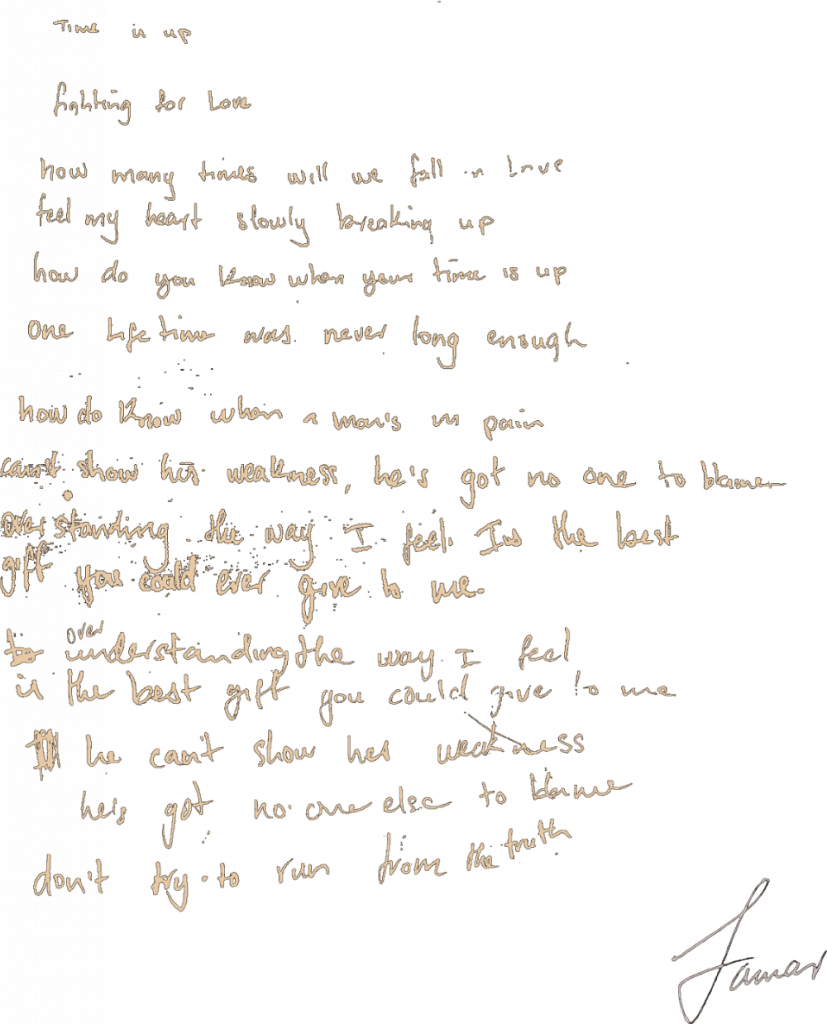 Time is up
fighting for Love
how many times will we fall in Love
feel my heart slowly breaking up
how do you know when your time is up
one Lifetime was never long enough
how do know when a man's in pain
can't show his weakness, he's got no one to blame
overstanding the way I feel Is the best
gift you could ever give to me.
over
understanding the way I feel
is the best gift you could give to me
he can't show his weakness
he's got no one else to blame
don't try to run from the truth